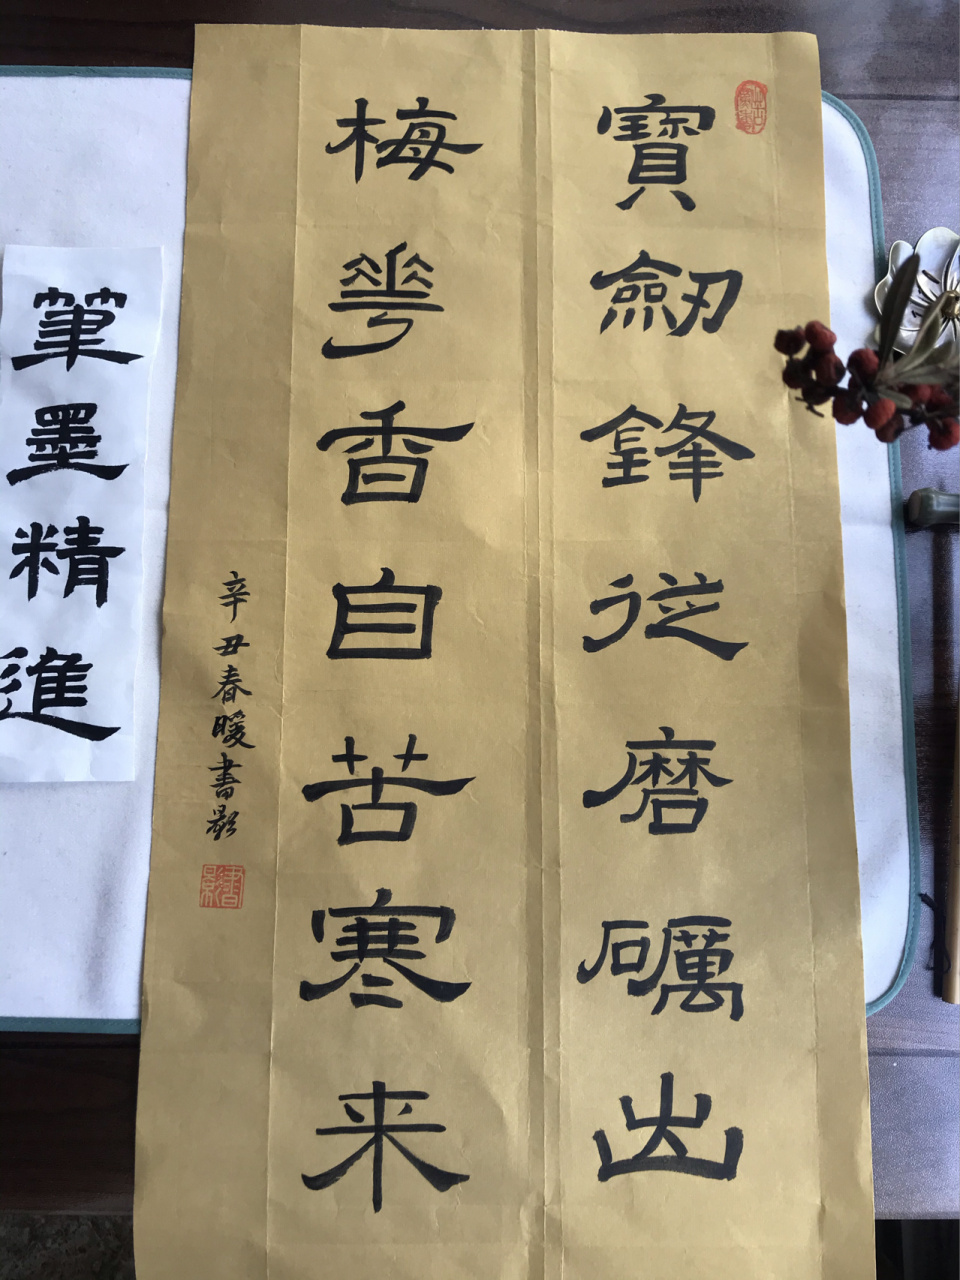 寶劒鋒從磨礪出
梅花香自苦寒来
辛丑春暖書影
書影
筆墨精進